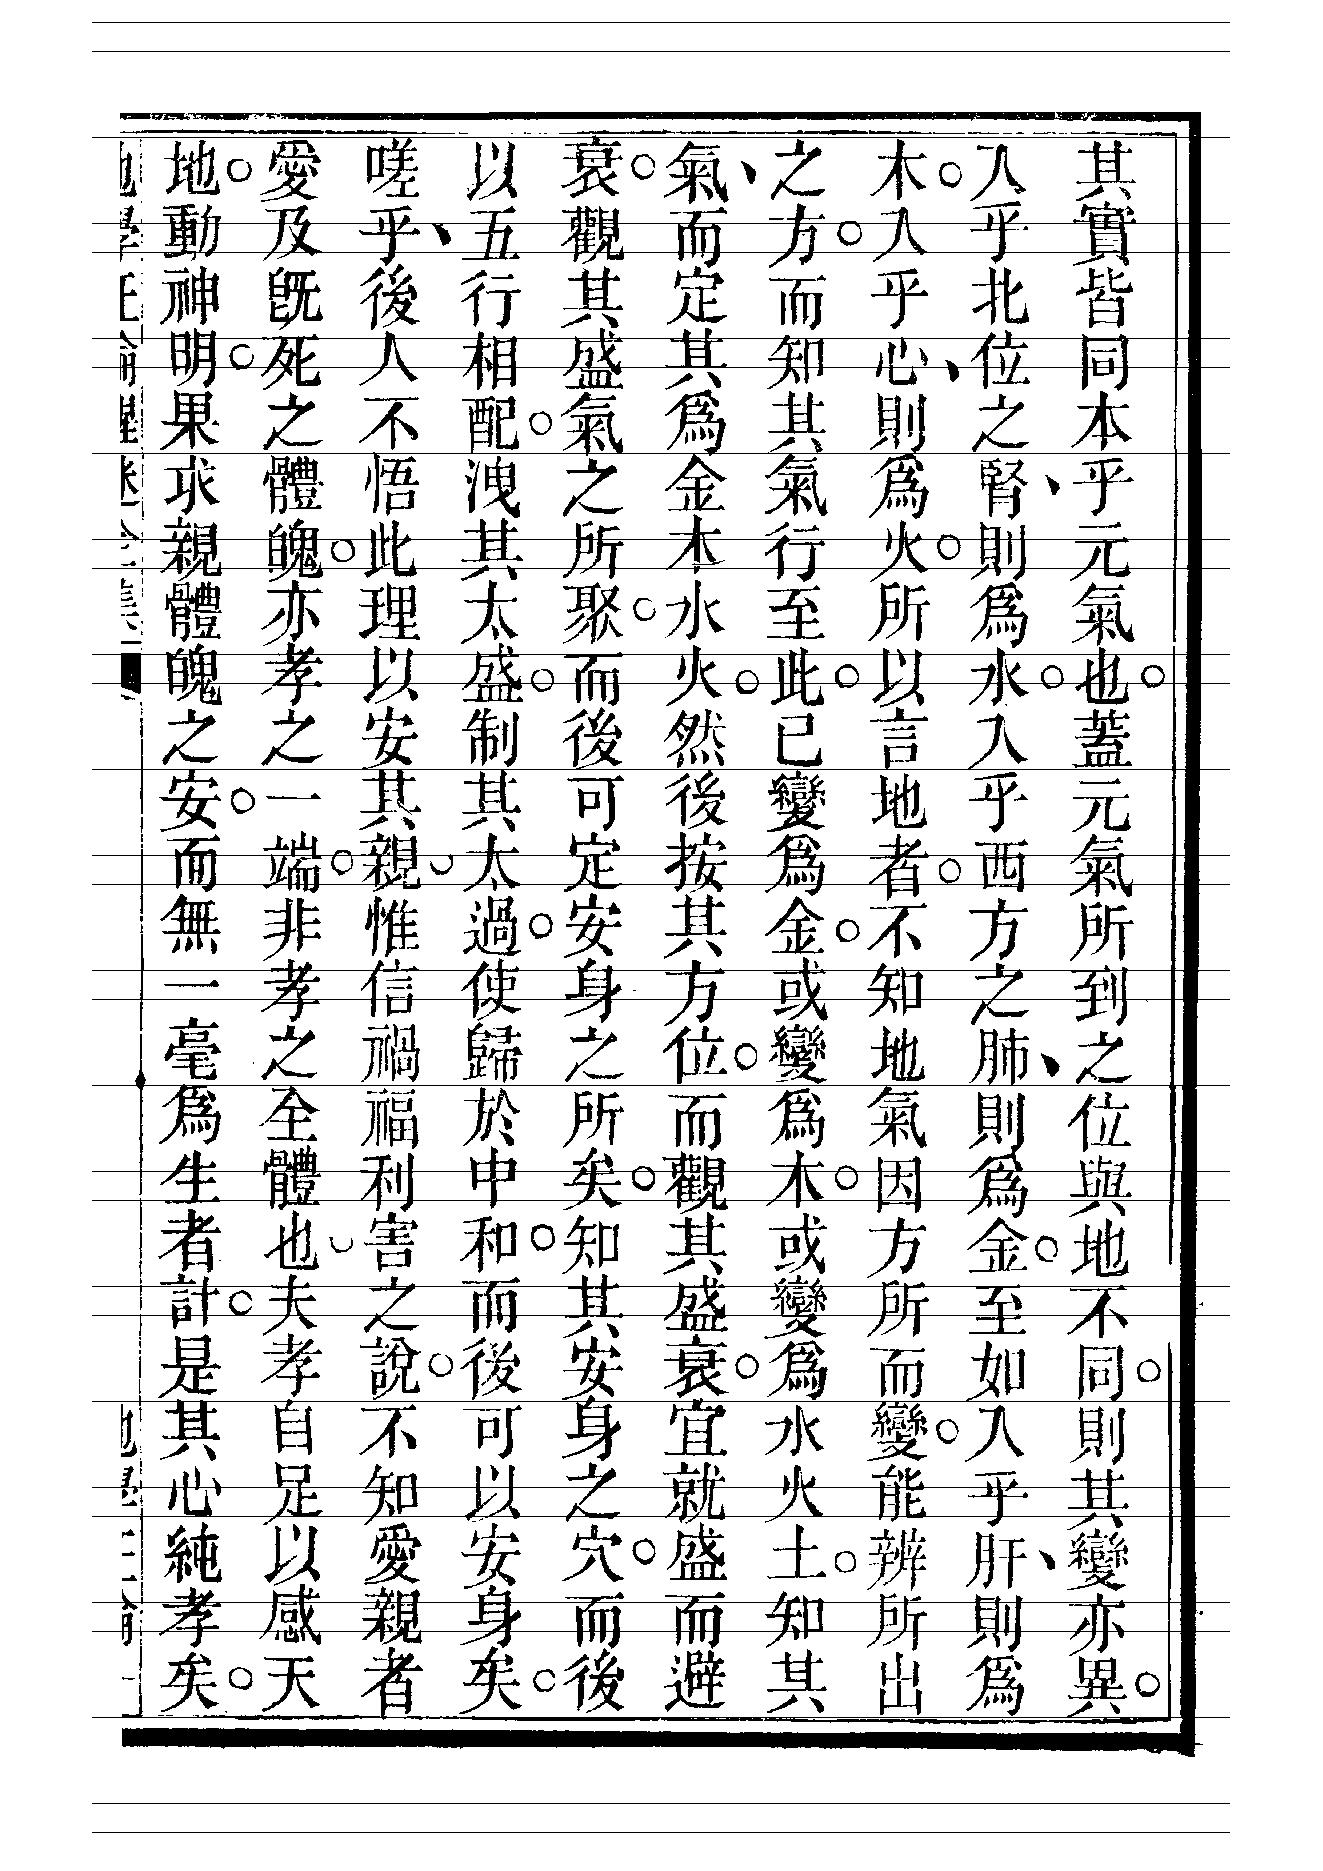 其實皆同本乎元氣也。蓋元氣所到之位與地不同。則其變亦異。
入乎北位之腎、則爲水。入乎西方之肺、則爲金。至如入乎肝、則爲
木。入乎心、則爲火。所以言地者。不知地氣因方所而變。能辨所出
之方。而知其氣行至此。已變爲金。或變爲木。或變爲水火土。知其
氣、而定其爲金木水火。然後按其方位。而觀其盛衰。宜就盛而避
衰。觀其盛氣之所聚。而後可定安身之所矣。知其安身之穴。而後
以五行相配。洩其太盛。制其太過。使歸於中和。而後可以安身矣。
嗟乎、後人不悟此理以安其親。惟信禍福利害之說。不知愛親者
愛及旣死之體魄。亦孝之一端。非孝之全體也。夫孝自足以感天
地。動神明。果求親體魄之安。而無一毫爲生者計。是其心純孝矣。